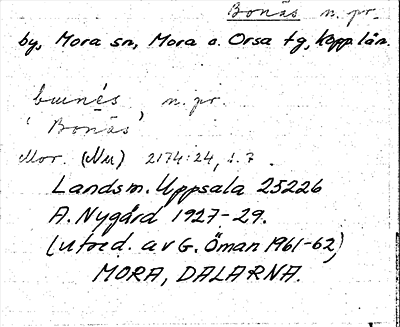 Bonäs n. pr.
by, Mora sn, Mora o. Orsa tg, Kopp. län.
bunés, n. pr.
'Bonäs'
Mor. (Nu) 2174:24, s. 7.
Landsm. Uppsala 25226
A. Nygård 1927-29.
(utförd. av G. Öman 1961-62)
MORA, DALARNA.